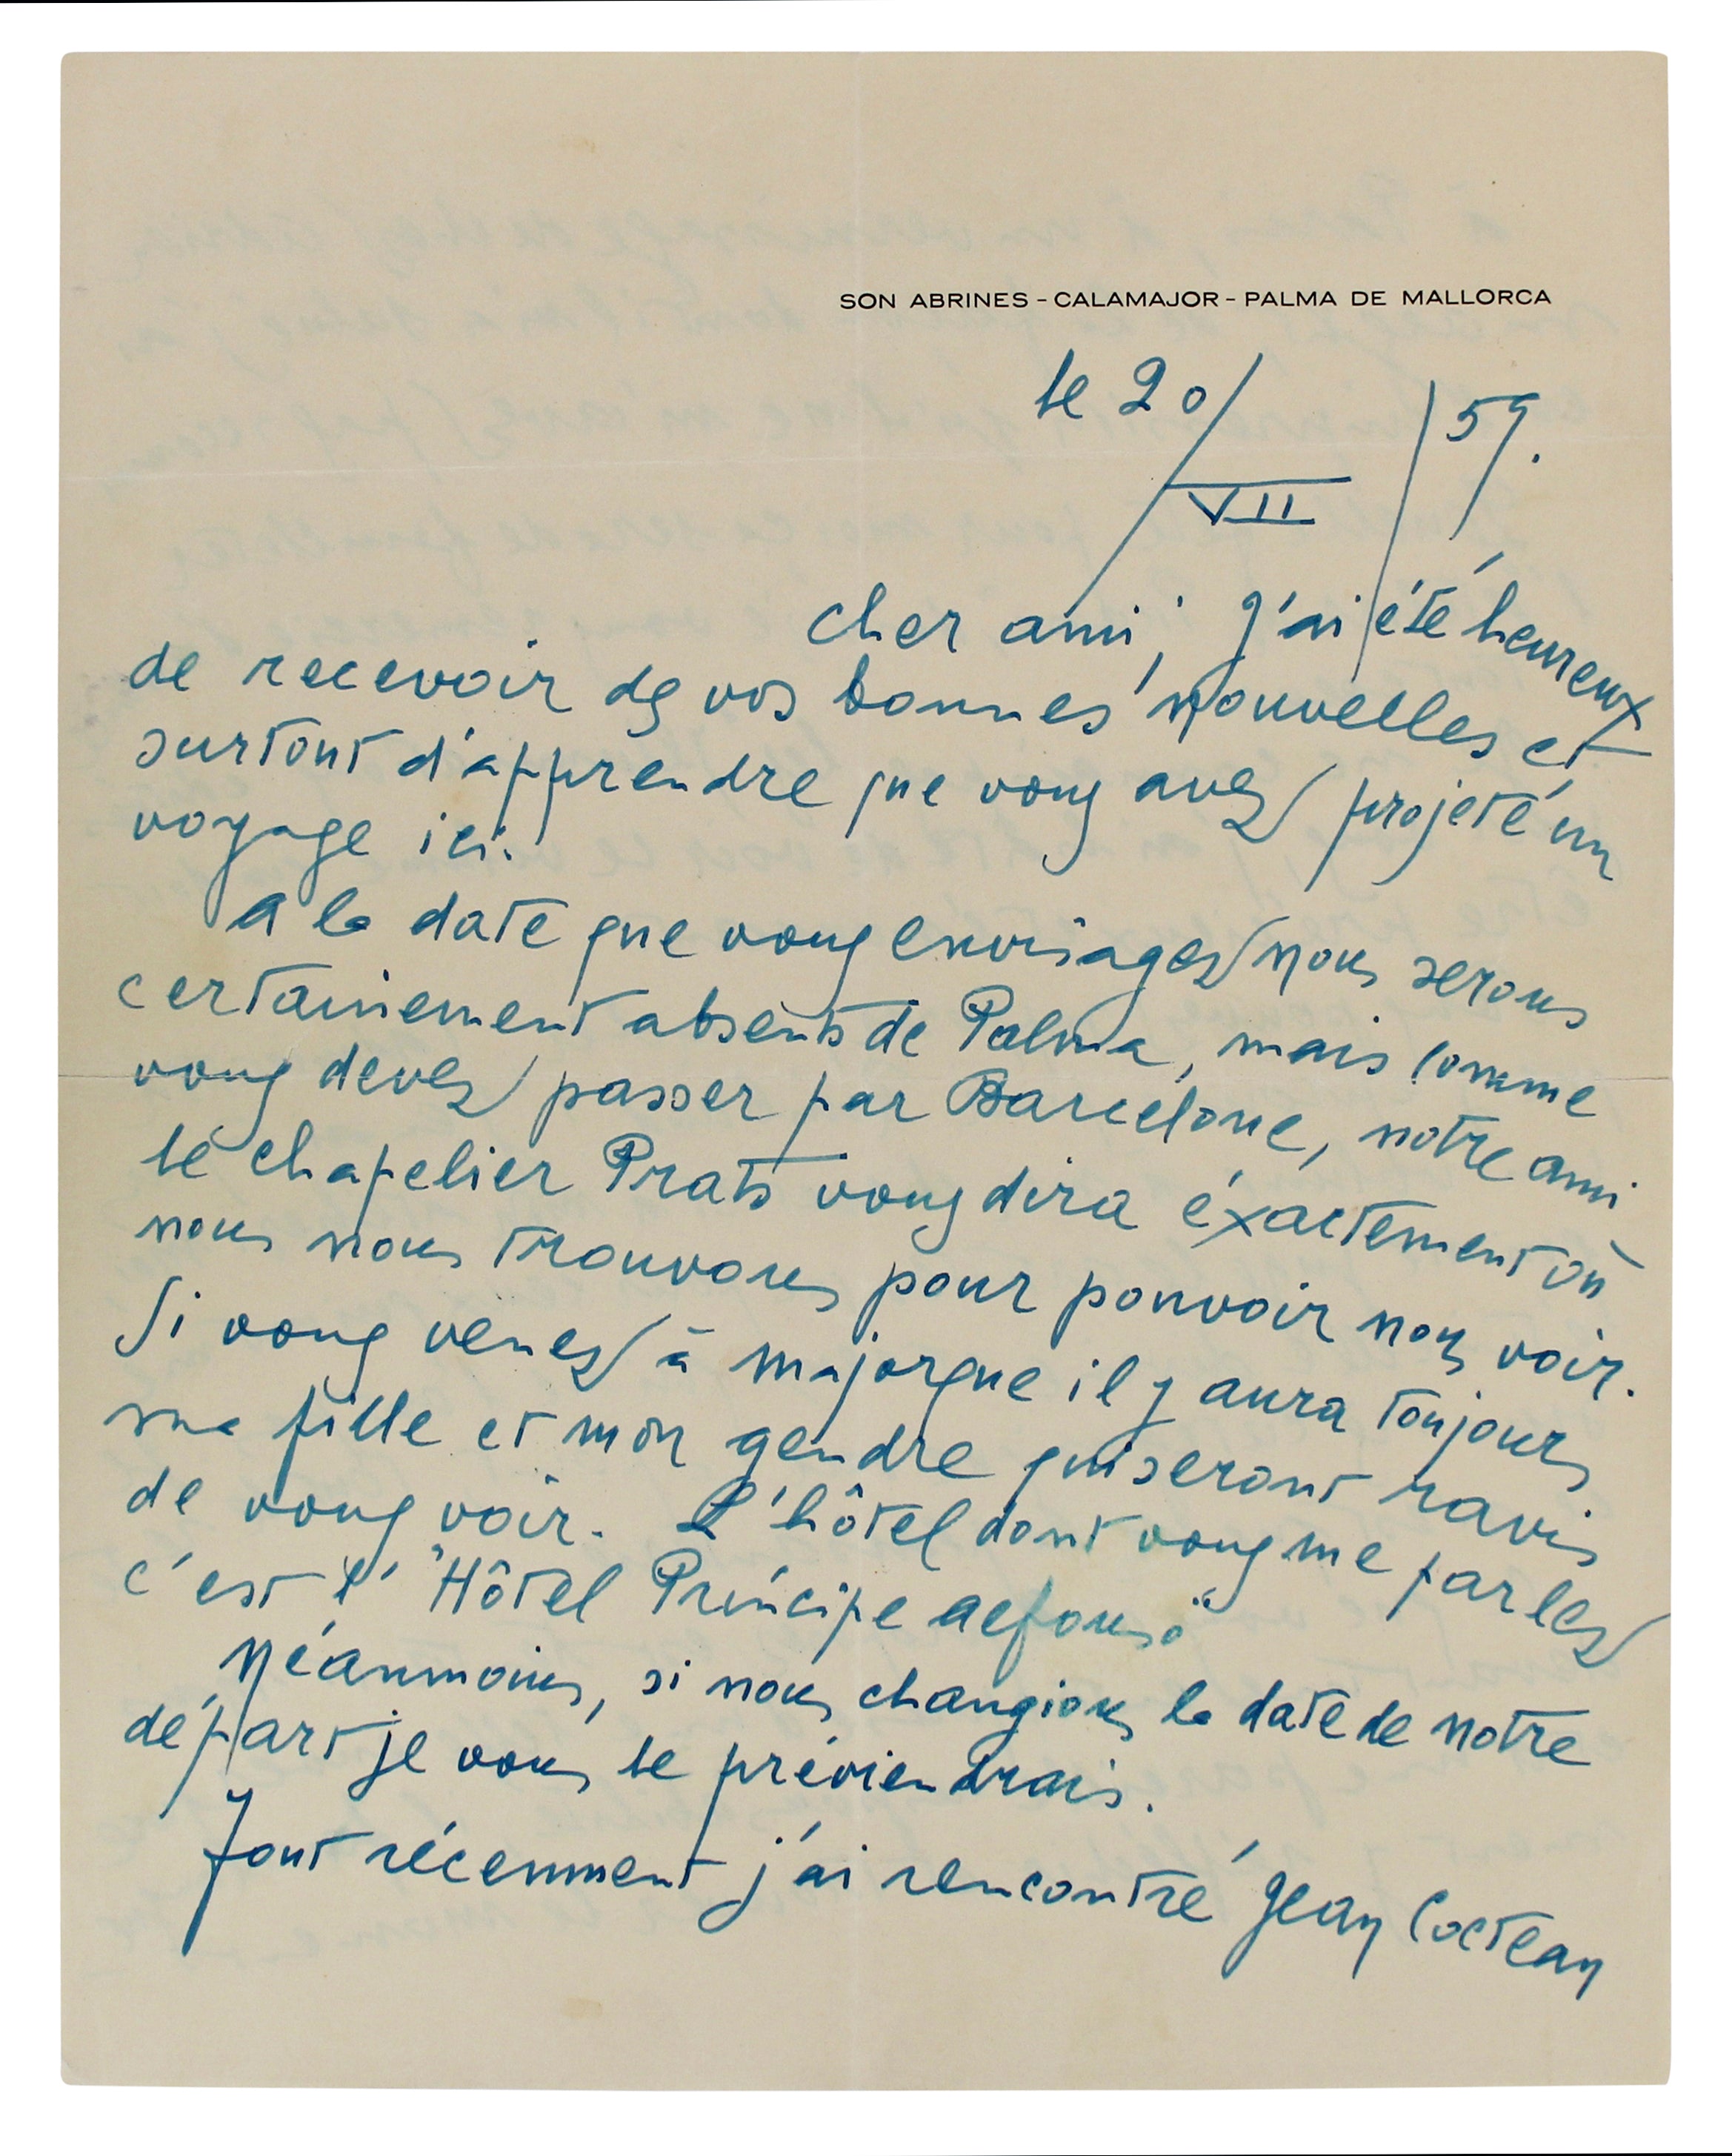 SON ABRINES - CALAMAJOR - PALMA DE MALLORCA
le 20/VII/59.
cher ami, J'ai été heureux
de recevoir de vos bonnes nouvelles et
surtout d'apprendre que vous avez projeté un
voyage ici.
A la date que vous envisagez nous serons
certainement absents de Palma, mais comme
vous devez passer par Barcelone, notre ami
le chapelier Prats vous dira éxactement où
nous nous trouvons pour pouvoir nous voir.
Si vous venez à majorque il y aura toujours
ma fille et mon gendre qui seront ravis
de vous voir. L'hôtel dont vous me parlez
c'est l' "Hôtel Príncipe Alfonso"
Néanmoins, si nous changions la date de notre
départ je vous le préviendrais.
Tout récemment j'ai rencontré Jean Cocteau